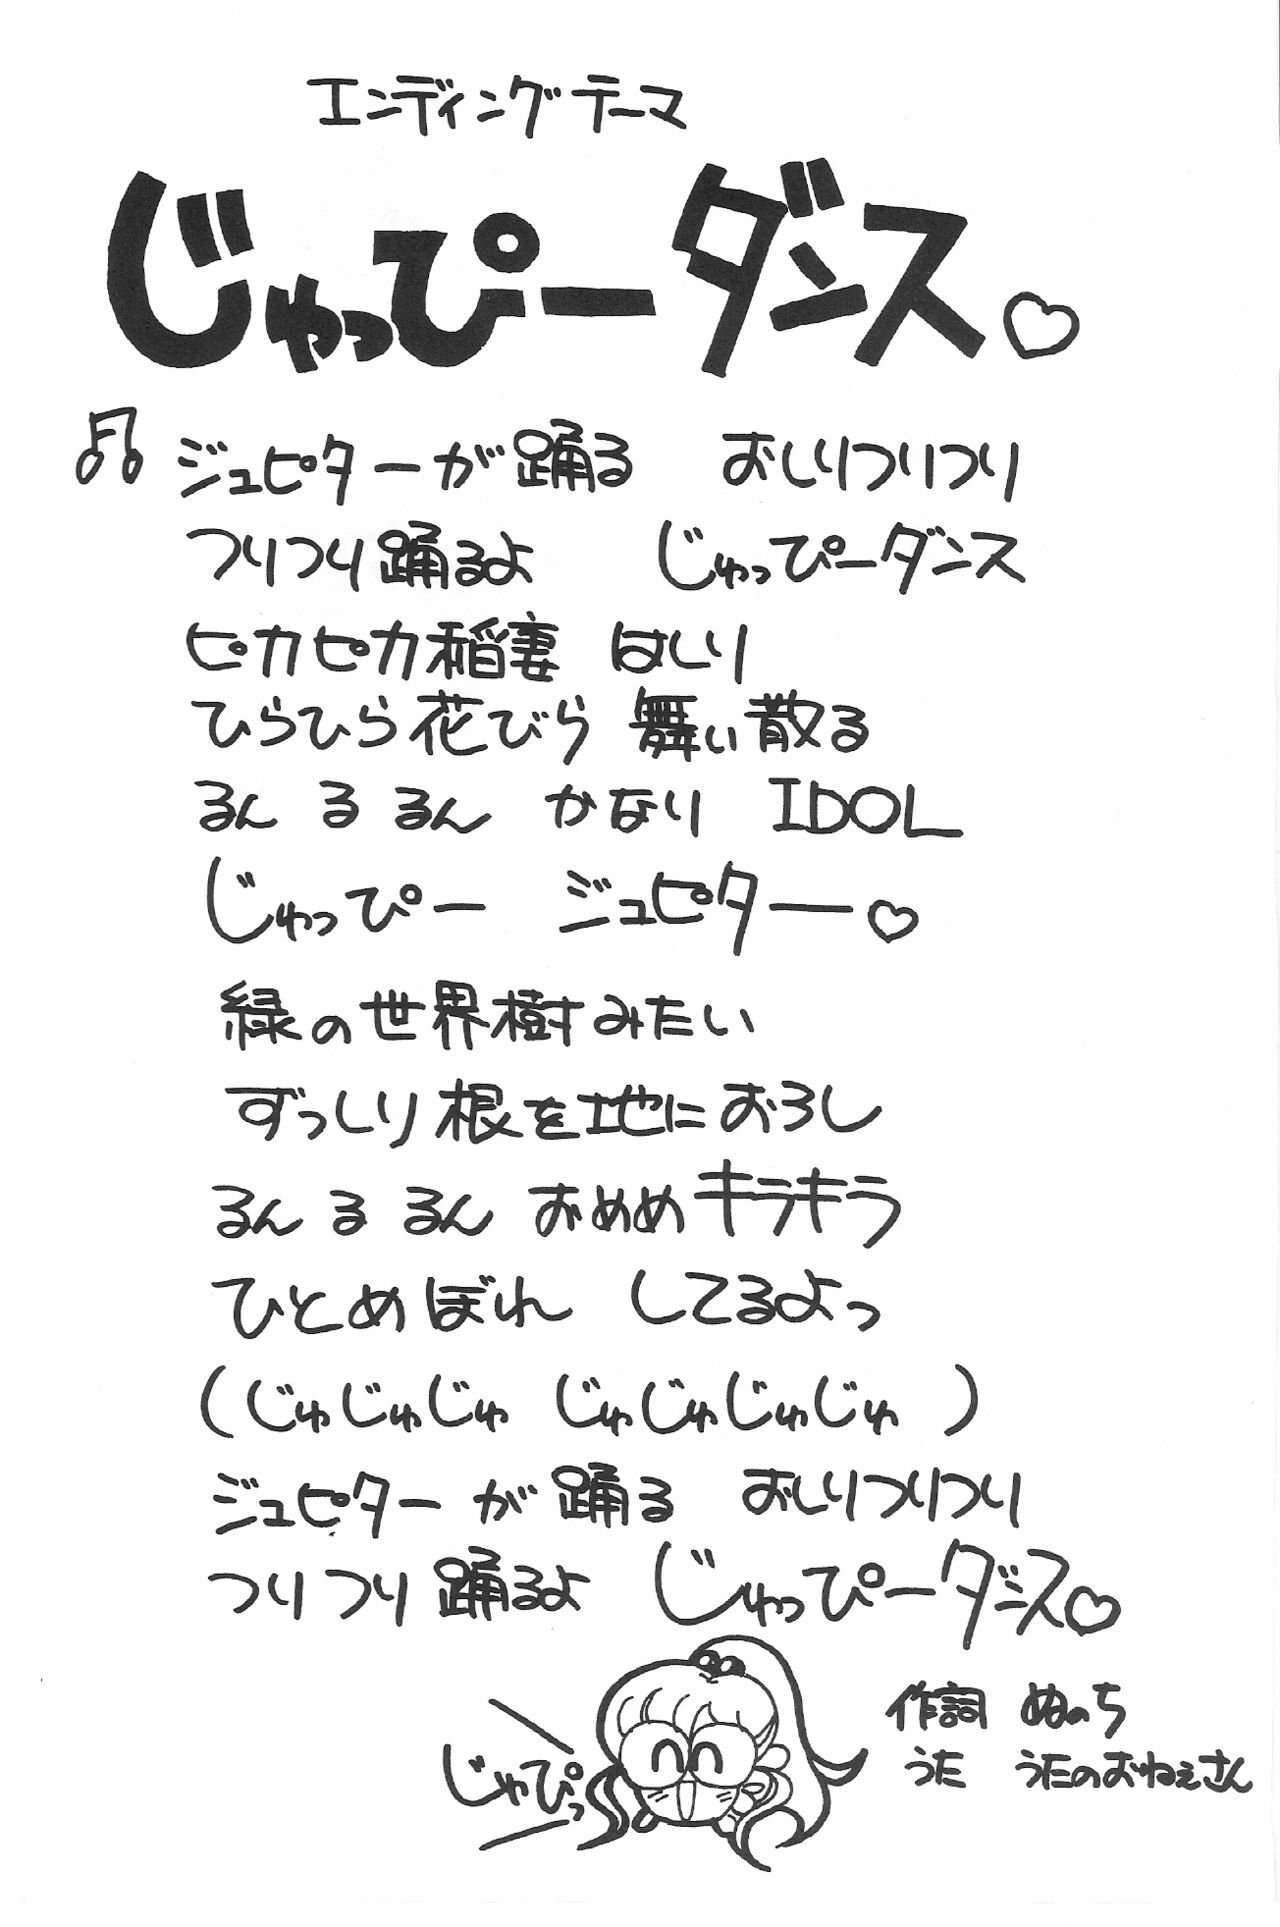 エンディングテーマ
じゃっぴーダンス♡
♫ ジュピターが踊る おしりつりつり
つりつり踊るよ じゅっぴーダンス
ピカピカ稲妻 はしり
ひらひら花びら 舞い散る
るん る るん かなり IDOL
じゅっぴー ジュピター♡
緑の世界樹みたい
ずっしり根を地におろし
るん る るん おめめキラキラ
ひとめぼれ してるよっ
(じゅじゅじゅ じゅじゅじゅじゅ)
ジュピターが踊る おしりつりつり
つりつり踊るよ じゅっぴーダンス♡
じゃぴっ
作詞 ぬのち
うた うたのおねぇさん